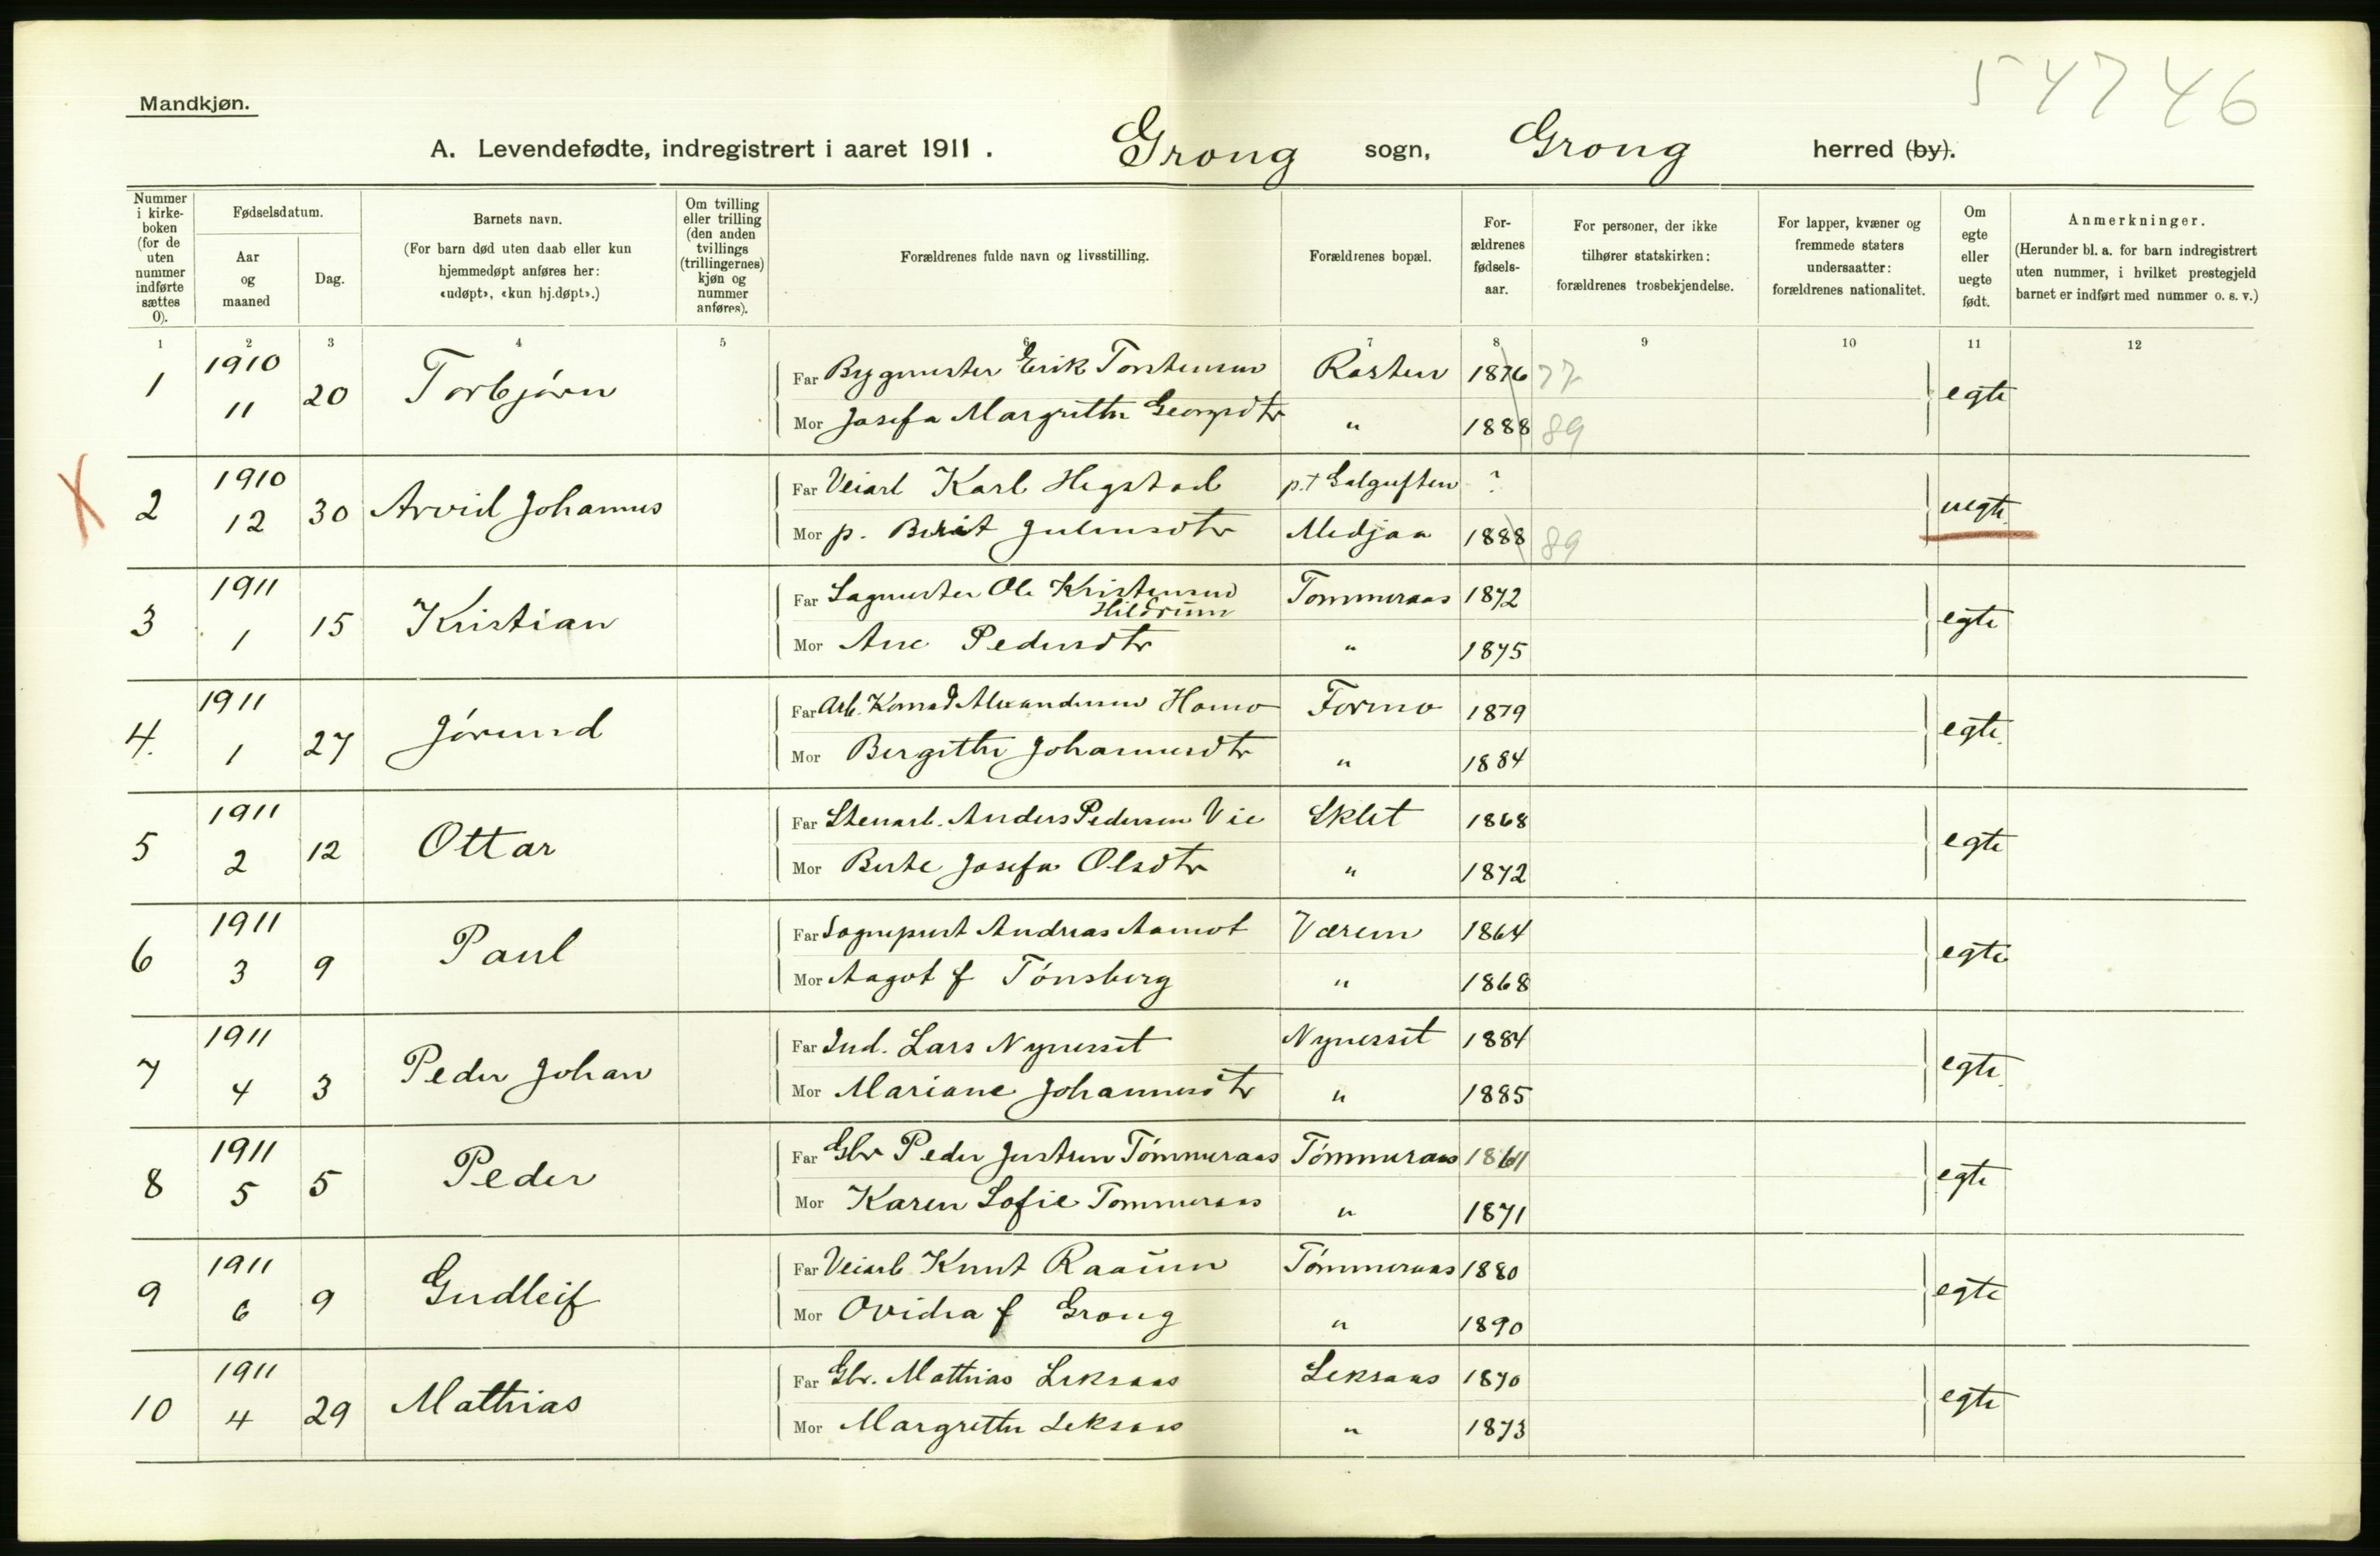 54746
Mandkjøn.
A. Levendefødte, indregistrert i aaret 1911. Grong sogn, Grong herred (by).
Nummer i kirkeboken (for de uten nummer indførte sættes 0).
Fødselsdatum.
Aar og maaned
Dag.
Barnets navn.
(For barn død uten daab eller kun hjemmedøpt anføres her: «udøpt», «kun hj.døpt».)
Om tvilling eller trilling (den anden tvillings (trillingernes) kjøn og nummer anføres).
Forældrenes fulde navn og livsstilling.
Forældrenes bopæl.
Forældrenes fødselsaar.
For personer, der ikke tilhører statskirken: forældrenes trosbekjendelse.
For lapper, kvæner og fremmede staters undersaatter: forældrenes nationalitet.
Om egte eller uegte født.
Anmerkninger.
(Herunder bl. a. for barn indregistrert uten nummer, i hvilket prestegjeld barnet er indført med nummer o. s. v.)
1 2 3 4 5 6 7 8 9 10 11 12
1 1910 11 20 Torbjørn Far Bygmester Erik Torstensen Rosten 1876 77 egte
Mor Josefa Margrethe Georgsdtr " 1888 89
X 2 1910 12 30 Arvid Johannes Far Veiarb Karl Hegstad p.t Galguften ? uegte
Mor p. Berit Julensdtr Medjaa 1888 89
3 1911 1 15 Kristian Far Sagmester Ole Kristensen Tommeraas 1872 egte
Hildrum
Mor Ane Pedersdtr " 1875
4. 1911 1 27 Jørund Far Arb. Konrad Alexandersen Homo Formo 1879 egte.
Mor Bergithe Johannesdtr " 1884
5 1911 2 12 Ottar Far Stenarb. Anders Pedersen Vie Sklet 1868 egte
Mor Berte Josefa Olsdtr " 1872
6 1911 3 9 Paul Far Sogneprest Andreas Aamot Værem 1864 egte
Mor Aagot f Tønsberg " 1868
7 1911 4 3 Peder Johan Far Ind. Lars Nynesset Nynesset 1884 egte.
Mor Mariane Johannesdtr " 1885
8 1911 5 5 Peder Far Gbr Peder Justsen Tømmeraas Tømmeraas 1861 egte
Mor Karen Sofie Tommeraas " 1871
9 1911 6 9 Gudleif Far Veiarb Knut Raaum Tømmeraas 1880 egte
Mor Ovidia f Grong " 1890
10 1911 4 29 Mathias Far Gbr. Mathias Leksaas Leksaas 1870 egte
Mor Margrethe Leksaas " 1873